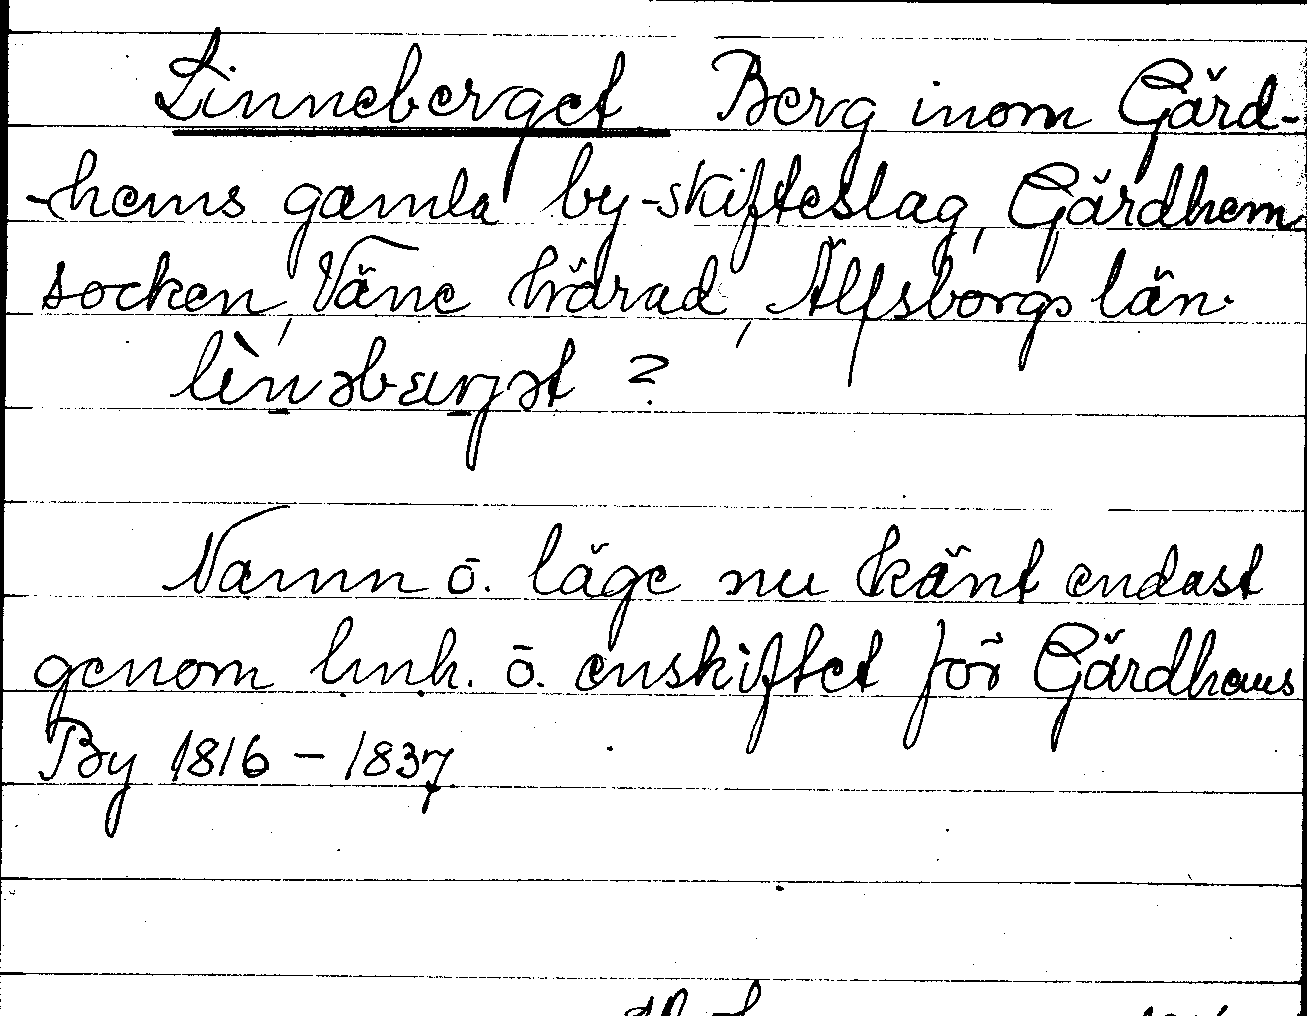 Linneberget Berg inom Gärd-
-hems gamla by-skifteslag, Gärdhem
socken, Väne härad, Älfsborgs län
lìnəbærjət ?
Namn o. läge nu känt endast
genom o. enskiftet för Gärdhems
By 1816 - 1837